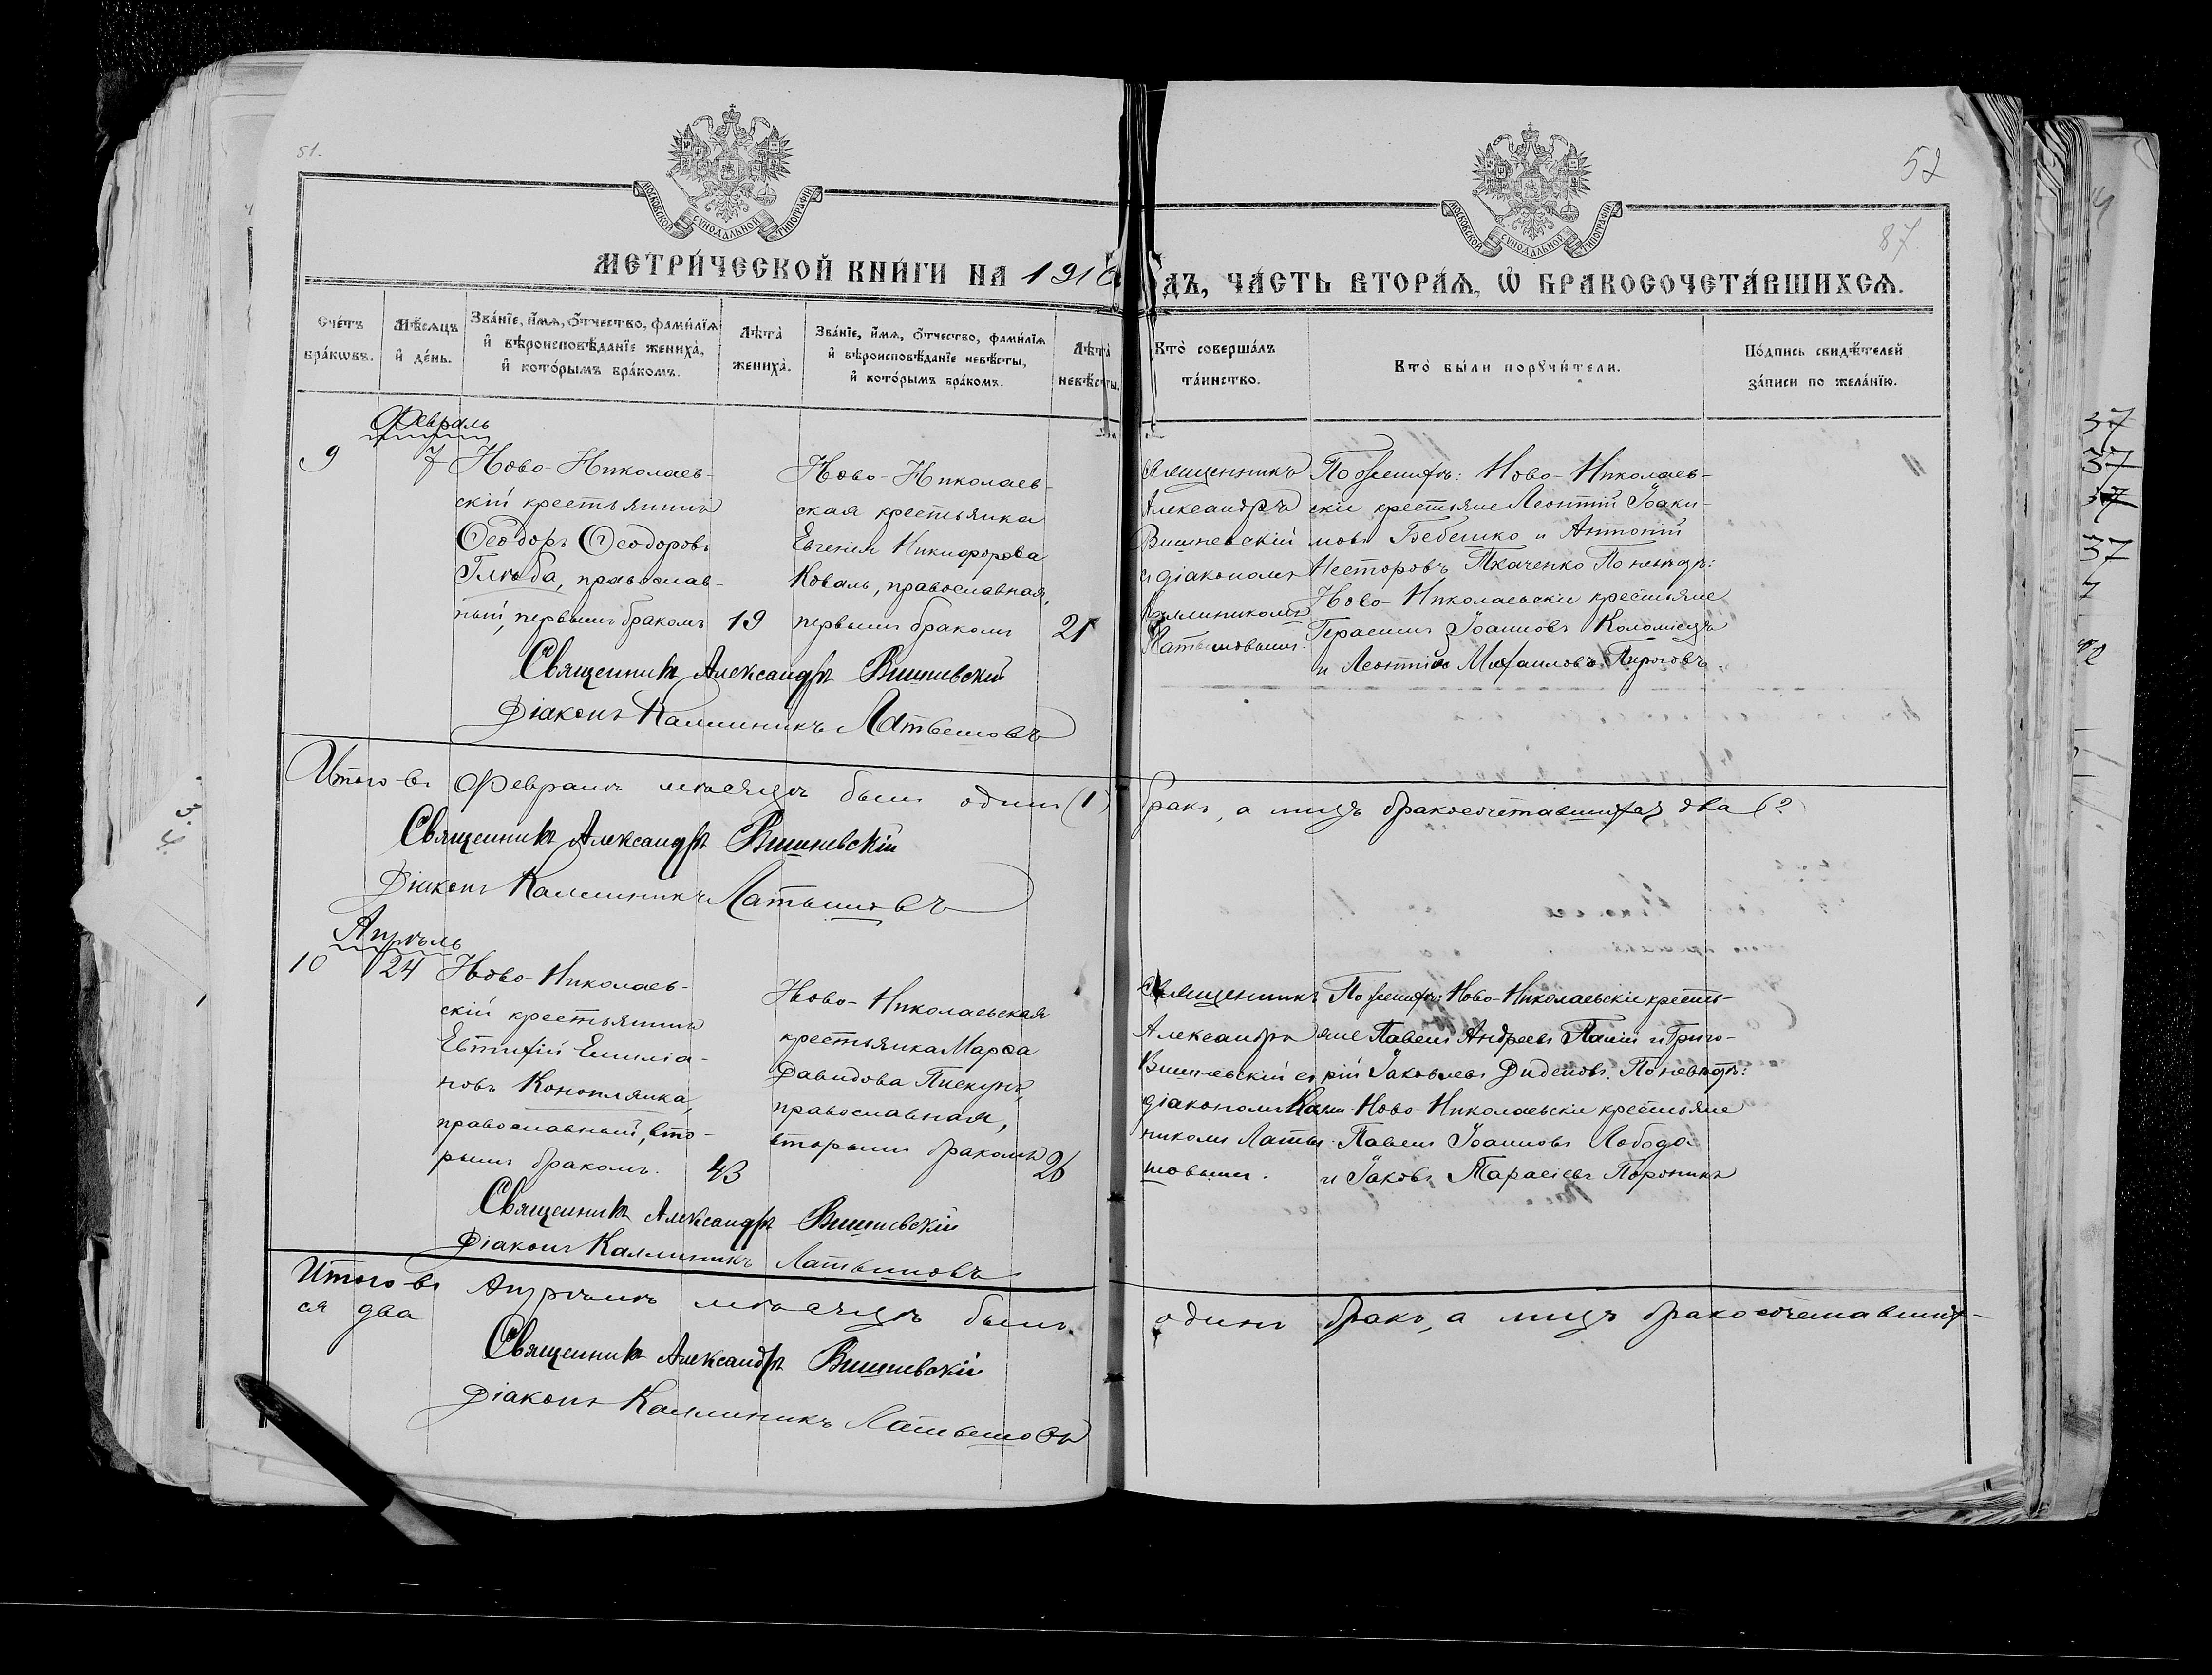 51.
52
87.
МОСКОВСКОЙ СѴНОДАЛЬНОЙ ТИПОГРАФІИ
МОСКОВСКОЙ СѴНОДАЛЬНОЙ ТИПОГРАФІИ
МЕТРИ́ЧЕСКОЙ КНИ́ГИ НА 191
ДЪ, ЧА́СТЬ ВТОРА́Ѧ, Ѡ҆ БРАКОСОЧЕТА́ВШИХСѦ.
Сче́тъ
бра́кѡвъ.
Мѣ́сѧцъ
и҆ де́нь.
Зва́нїе, и҆́мѧ, о҆́тчество, фами́лїѧ
и҆ вѣроисповѣ́данїе жениха̀,
и҆ кото́рымъ бра́комъ.
Лѣта̀
жениха̀.
Зва́нїе, и҆́мѧ, о҆́тчество, фами́лїѧ
и҆ вѣроисповѣ́данїе невѣ́сты,
и҆ кото́рымъ бра́комъ.
Лѣта̀
невѣ́сты.
Кто̀ соверша́лъ
та́инство.
Кто̀ бы́ли порꙋчи́тели.
По́дпись свидѣ́телей
за́писи по жела́нїю.
Февраль
9
7
Ново-Николаев-
скій крестьянинъ
Ѳеодоръ Ѳеодоровъ
Глюба, православ-
ный, первымъ бракомъ
19
Ново-Николаев-
ская крестьянка
Евгенія Никифорова
Коваль, православная,
первымъ бракомъ
21
Священникъ
Александръ
Вишневскій
съ діакономъ
Каллиникомъ
Латышовымъ.
По женихѣ: Ново-Николаев-
скіе крестьяне Леонтій Іоаки-
мовъ Бебешко и Антоній
Несторовъ Ткаченко По невѣстѣ:
Ново-Николаевскіе крестьяне
Герасимъ Іоанновъ Коломіецъ
и Леонтій Михаиловъ Пироговъ.
Священникъ Александръ Вишневскій
Діаконъ Каллиникъ Латышовъ
Итого въ Февралѣ мѣсяцѣ былъ одинъ (1)
бракъ, а лицъ бракосочетавшихся два (2
Священникъ Александръ Вишневскій
Діаконъ Каллиникъ Латышовъ
Апрѣль
10
24
Ново-Николаев-
скій крестьянинъ
Евтихій Емиліа-
новъ Коноплянка,
православный, вто-
рымъ бракомъ.
43
Ново-Николаевская
крестьянка Марѳа
Давидова Пискунъ,
православная,
вторымъ бракомъ
26
Священникъ
Александръ
Вишневскій съ
діакономъ Калли-
никомъ Латы-
шовымъ.
По женихѣ: Ново-Николаевскіе кресть-
яне Павелъ Андреевъ Палій и Григо-
рій Іаковлевъ Диденовъ. По невѣстѣ:
Ново-Николаевскіе крестьяне
Павелъ Іоанновъ Лобода
и Іаковъ Тарасіевъ Пороникъ
Священникъ Александръ Вишневскій
Діаконъ Каллиникъ Латышовъ
Итого въ Апрѣлѣ мѣсяцѣ былъ
одинъ бракъ, а лицъ бракосочетавших-
ся два
Священникъ Александръ Вишневскій
Діаконъ Каллиникъ Латышовъ
37
37
37
37